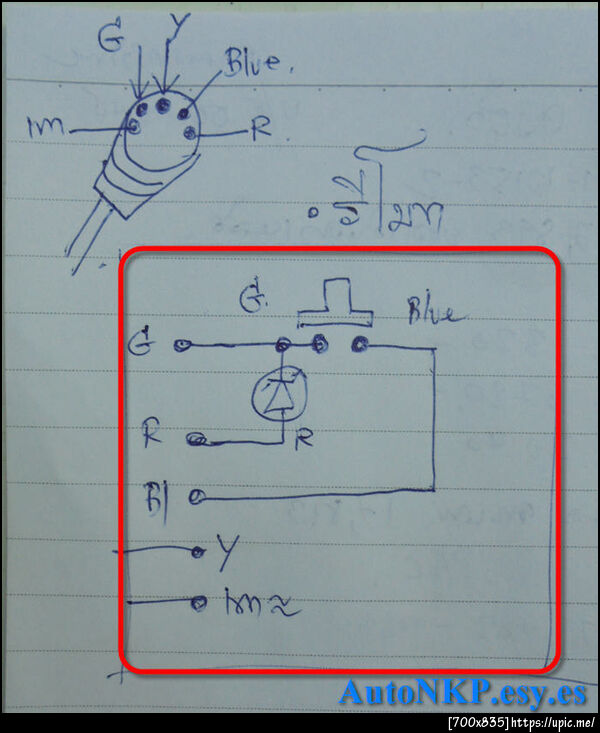 G Y
Blue.
เทา R
รีโมท
G. Blue
G
R R
Bl
Y
AutoNKP.esy.es
[700x835]https://upic.me/